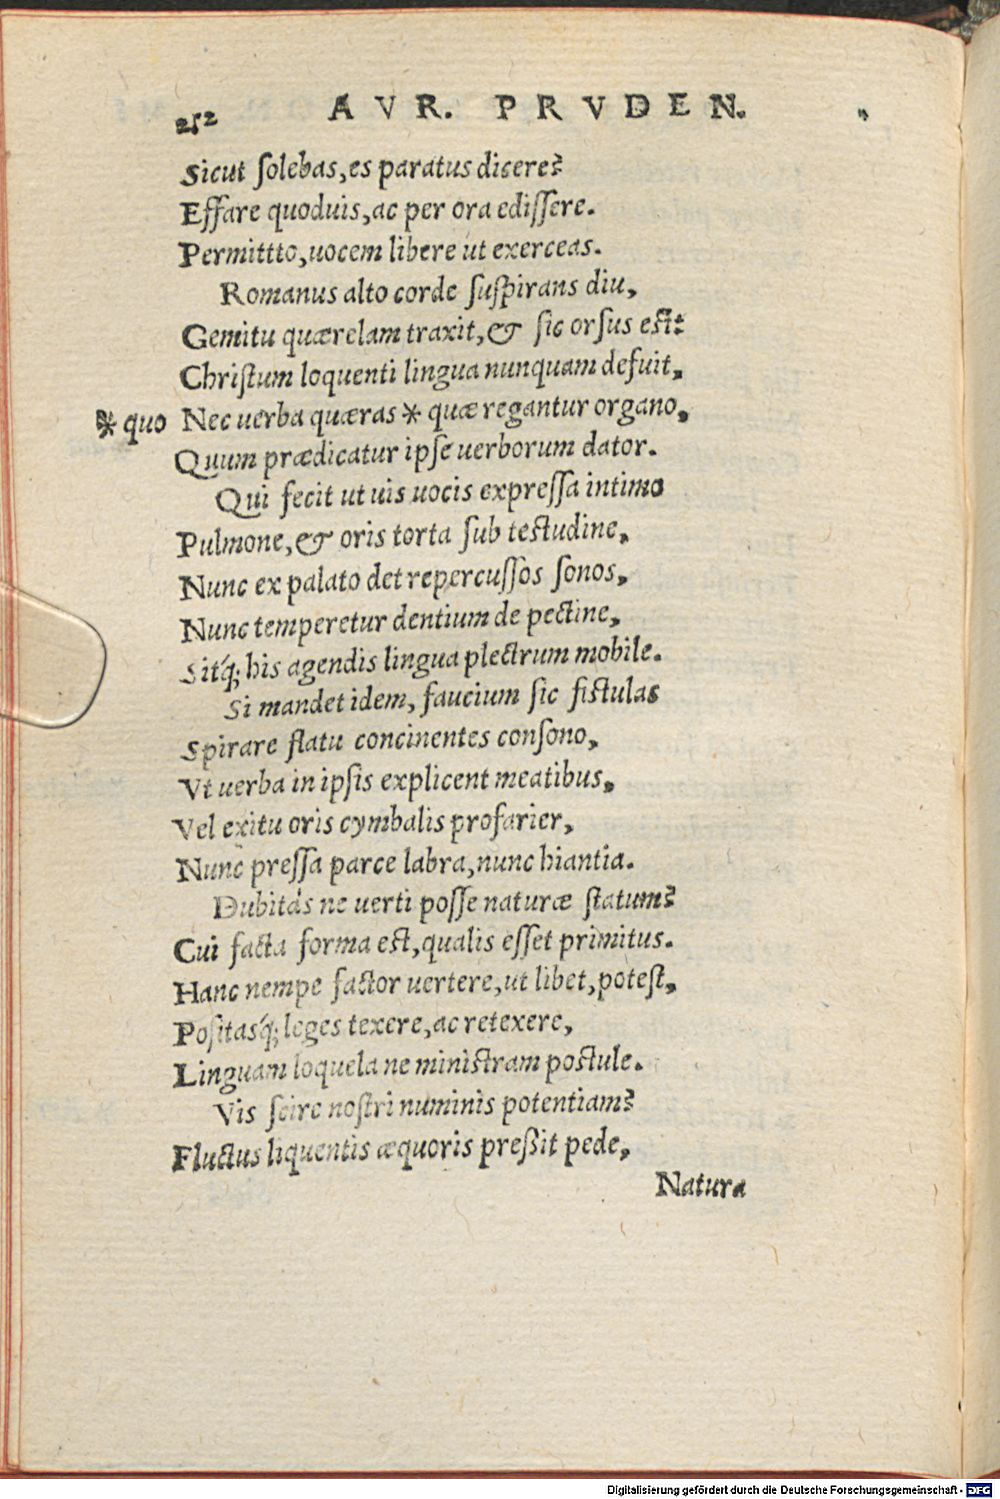 252 AVR. PRVDEN.
Sicut ſolebas, es paratus dicere?
Effare quoduis, ac per ora ediſſere.
Permittto, uocem libere ut exerceas.
Romanus alto corde ſuſpirans diu,
Gemitu quærelam traxit, & ſic orſus eſt:
Chriſtum loquenti lingua nunquam defuit,
* quo Nec uerba quæras * quæ regantur organo,
Quum prædicatur ipſe uerborum dator.
Qui fecit ut uis uocis expreſſa intimo
Pulmone, & oris torta ſub teſtudine,
Nunc ex palato det repercuſſos ſonos,
Nunc temperetur dentium de pectine,
Sitq́; his agendis lingua plectrum mobile.
Si mandet idem, faucium ſic fiſtulas
Spirare flatu concinentes conſono,
Vt uerba in ipſis explicent meatibus,
Vel exitu oris cymbalis profarier,
Nunc preſſa parce labra, nunc hiantia.
Dubitás ne uerti poſſe naturæ ſtatum?
Cui facta forma eſt, qualis eſſet primitus.
Hanc nempe factor uertere, ut libet, poteſt,
Poſitasq́; leges texere, ac retexere,
Linguam loquela ne miniſtram poſtule.
Vis ſcire noſtri numinis potentiam?
Fluctus liquentis æquoris preßit pede,
Natura
Digitalisierung gefördert durch die Deutsche Forschungsgemeinschaft - DFG